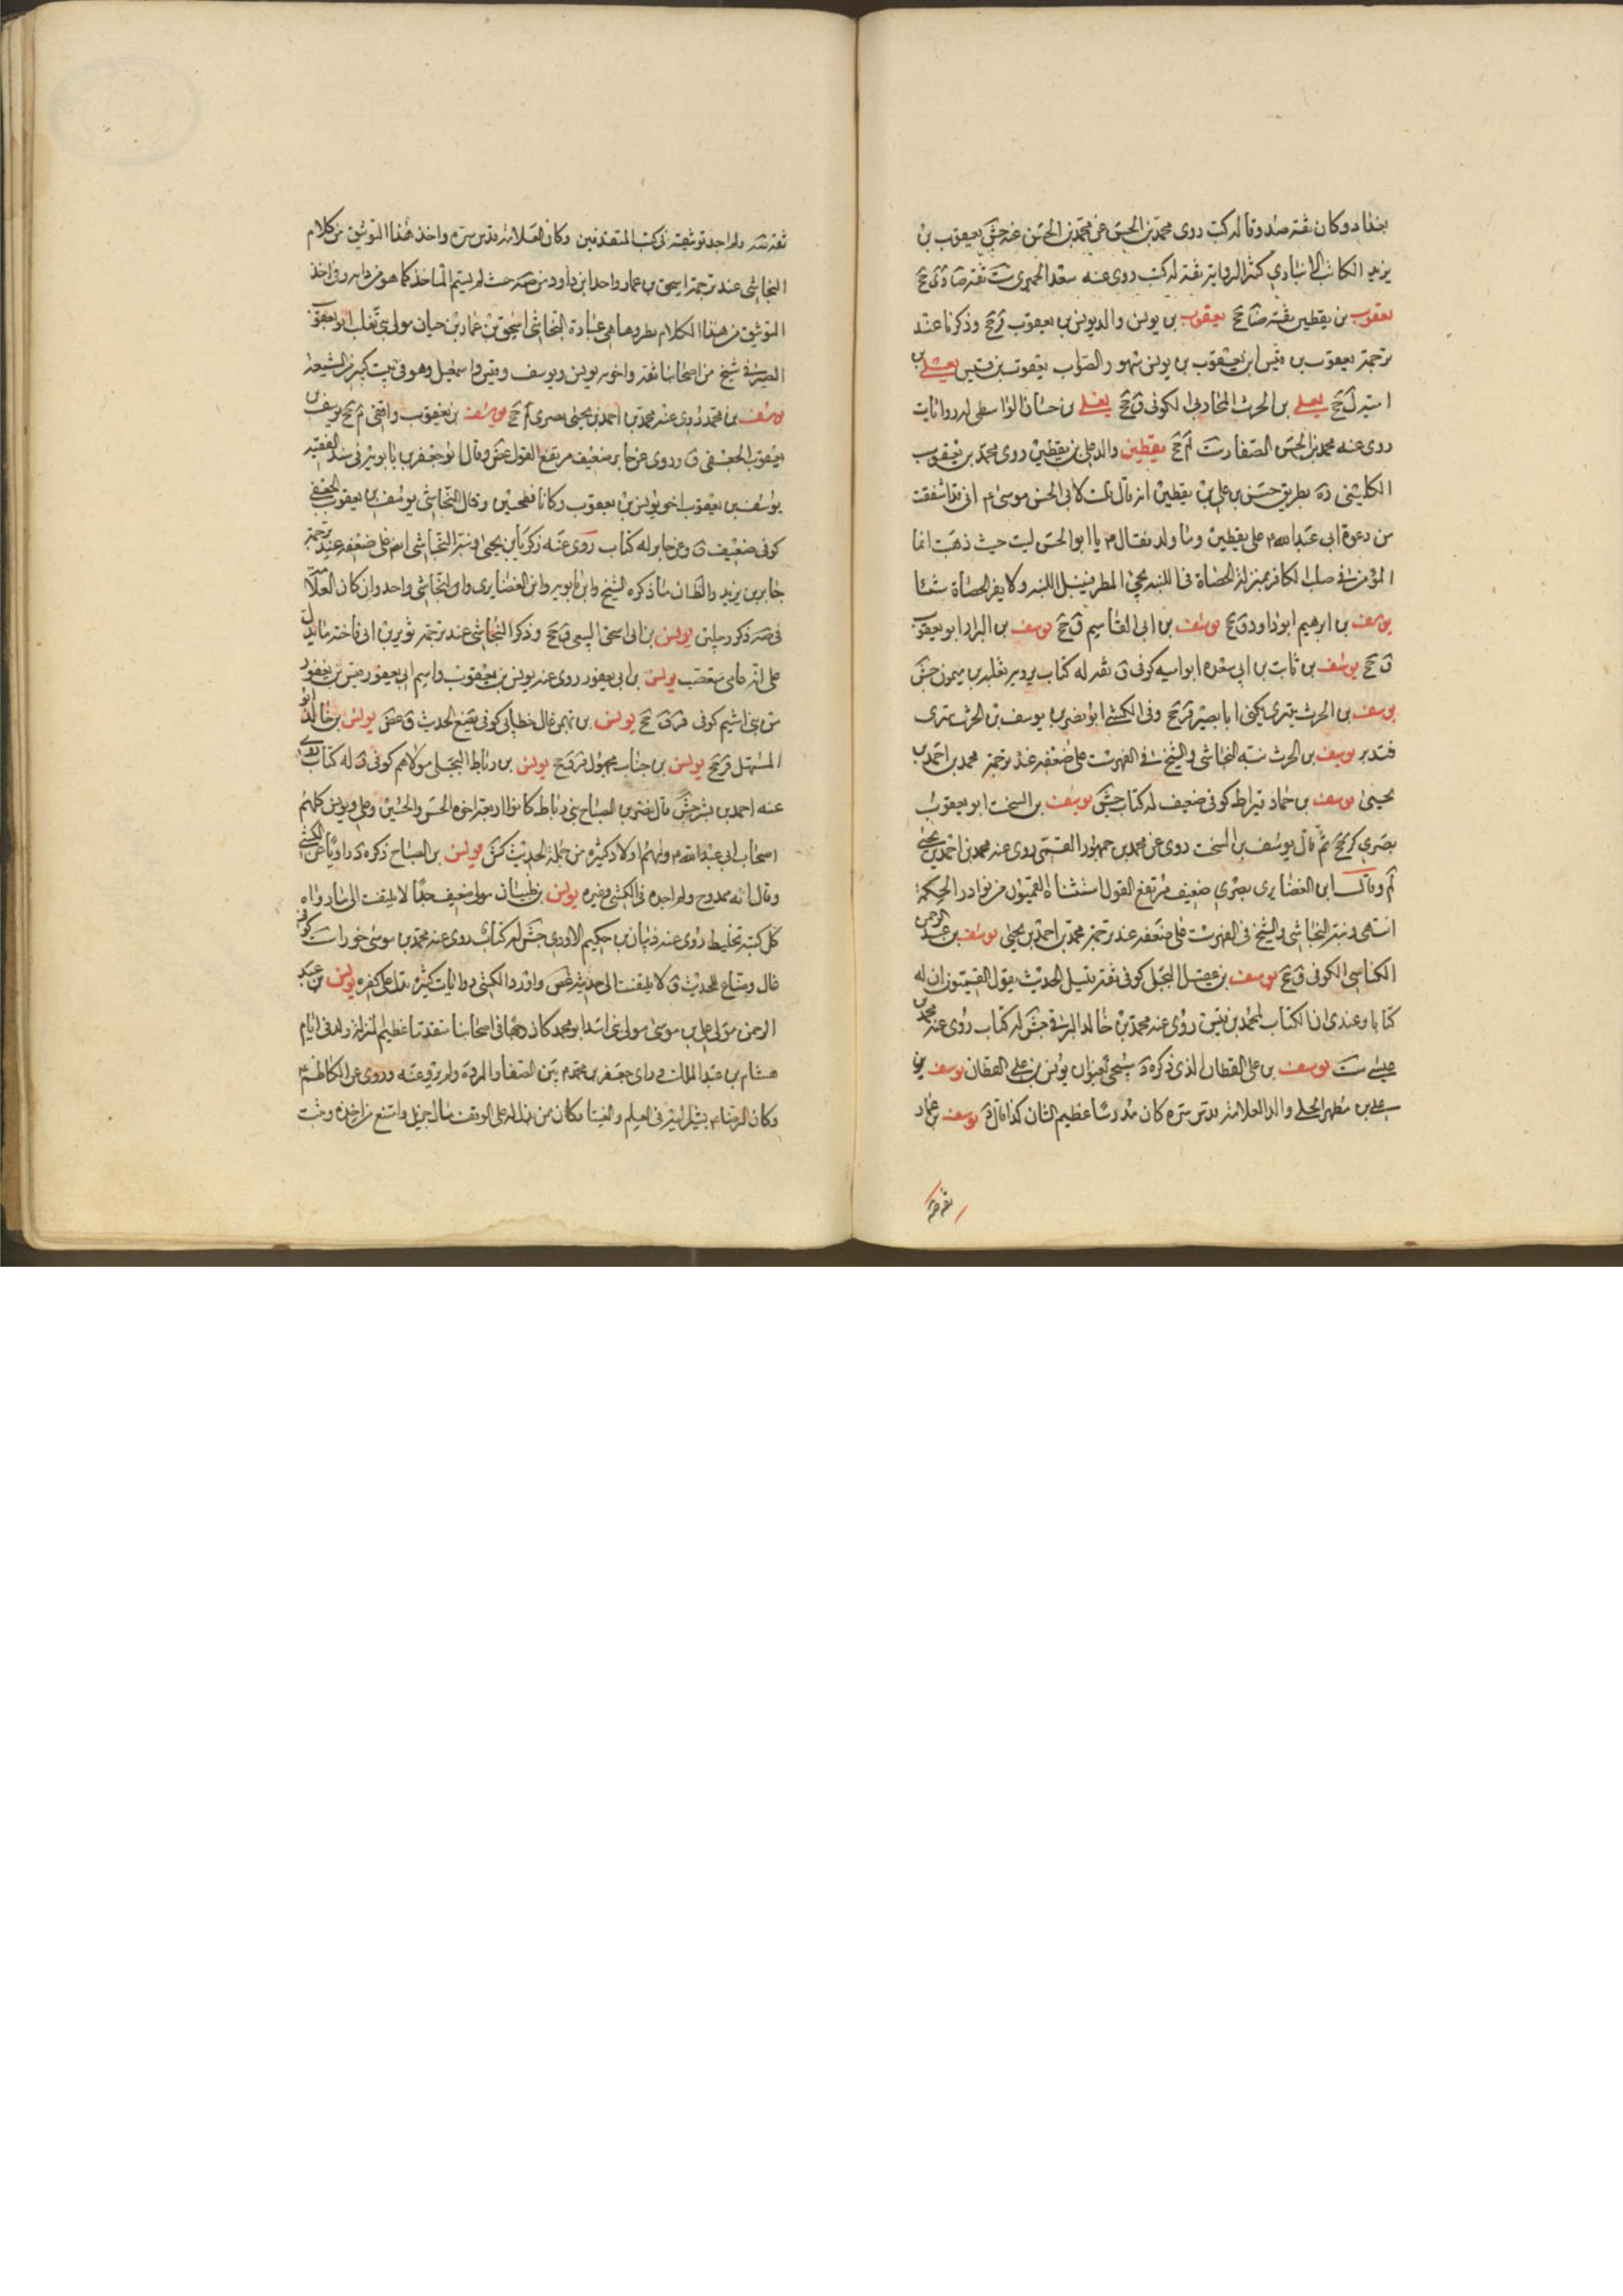 بغداد وكان ثقة صدوقا له كتب روى محمد بن الحسن عن محمد بن الحسن عنه جش يعقوب بن
يزيد الكاتب الانباري كثير الرواية ثقة له كتب روى عنه سعد الحميري ست ثقة ضا دي جخ
يعقوب بن يقطين ثقة ضا جخ يعقوب بن يونس والد يونس بن يعقوب ق جخ وذكرنا عند
ترجمة يعقوب بن قيس ان يعقوب بن يونس سهو والصواب يعقوب بن قيس يعلى بن
يعلى بن الحرث المحاربي الكوفي ق جخ يعلى بن حسان الواسطي له روايات
روى عنه محمد بن الحسن الصفار ست لم جخ يقطين والد علي بن يقطين روى محمد بن يعقوب
الكليني ره بطريق حسن عن علي بن يقطين انه قال قلت لابي الحسن موسى ع اني قد اشفقت
من دعوة ابي عبد الله ع على يقطين وما ولد فقال ع يا ابا الحسن ليس حيث ذهبت انما
المؤمن في صلب الكافر بمنزلة الحصاة في اللبنة يجئ المطر فيغسل اللبنة ولا يضر الحصاة شيئا
يوسف بن ابرهيم ابو داود ق جخ يوسف بن ابي القاسم ق جخ يوسف بن البراد ابو يعقوب
ق جخ يوسف بن ثابت بن ابي سعدة ابو امية كوفي ق ثقة له كتاب يرويه ثعلبة بن ميمون جش
يوسف بن الحرث بتري يكنى ابا بصير قر جخ وفي الكشي ابو نصر بن يوسف بن الحرث بتري
فتدبر يوسف بن الحرث نسبه النجاشي والشيخ في الفهرست على ضعفه عند ترجمة محمد بن احمد بن
يحيى يوسف بن حماد قيراط كوفي ضعيف له كتاب جش يوسف بن السخت ابو يعقوب
بصري كر جخ ثم قال يوسف بن السخت روى عن محمد بن جمهور القمي روى عنه محمد بن احمد بن يحيى
لم وقال ابن الغضايري بصري ضعيف مرتفع القول استثناه القميون من نوادر الحكمة
انتهى ونبه النجاشي والشيخ في الفهرست على ضعفه عند ترجمة محمد بن احمد بن يحيى يوسف بن عبد الرحمن
الكناسي الكوفي ق جخ يوسف بن عقيل البجلي كوفي ثقة قليل الحديث يقول القميون ان له
كتابا وعندي ان الكتاب لمحمد بن قيس روى عنه محمد بن خالد البرقي جش له كتاب روى عنه محمد بن
عيسى ست يوسف بن علي القطان الذي ذكره د سيجئ بعنوان يونس بن علي القطان يوسف بن
علي بن مطهر الحلي والد العلامة قدس سره كان مدرسا عظيم الشان كذا قال د يوسف بن عماد
ثقة صه
ثقة صه ولم اجد توثيقه في كتب المتقدمين وكان العلامة قدس سره واخذ هذا التوثيق من كلام
النجاشي عند ترجمة اسحق بن عمار واخذ ابن داود من صه حيث لم يسم الماخذ كما هو من دابه وفي اخذ
التوثيق من هذا الكلام نظر وها هي عبارة النجاشي اسحق بن عمار بن حيان مولى بني تغلب ابو يعقوب
الصيرفي شيخ من اصحابنا ثقة واخوته يونس ويوسف وقيس واسمعيل وهو في بيت كبير من الشيعة
يوسف بن محمد روى عنه محمد بن احمد بن يحيى بصري لم جخ يوسف بن يعقوب واقفي م جخ يوسف بن
يعقوب الجعفي ق روى عن جابر ضعيف مرتفع القول غض وقال ابو جعفر بن بابويه في سند الفقيه
يوسف بن يعقوب اخو يونس بن يعقوب وكانا فطحيين وقال النجاشي يوسف بن يعقوب الجعفي
كوفي ضعيف ق وعن جابر له كتاب روى عنه زكريا بن يحيى ونبه النجاشي ايضا على ضعفه عند ترجمة
جابر بن يزيد والظاهر ان ما ذكره الشيخ وابن بابويه وابن الغضايري والنجاشي واحد وان كان العلامة
في صه ذكر رجلين يونس بن ابي اسحق السبيعي ق جخ وذكر النجاشي عند ترجمة ثوير بن ابي فاختة ما يدل
على انه عامي متعصب يونس بن ابي يعفور روى عنه يونس بن يعقوب واسم ابي يعفور قيس بن يعفور
من بني اشيم كوفي قر ق جخ يونس بن بهمن غال خطابي كوفي يضع الحديث ق غض يونس بن خالد ابو
المستهل قر جخ يونس بن خباب مجهول قر جخ يونس بن رباط البجلي مولاهم كوفي ق له كتاب روى
عنه احمد بن بشر جش قال نصر بن الصباح بني رباط كانوا اربعة اخوة الحسن والحسين وعلي ويونس كلهم
اصحاب ابي عبد الله ع ولهم اولاد كثيرة من حملة الحديث كش يونس بن الصباح ذكره د راويا عن الكشي
وقال انه ممدوح ولم اجده في الكشي وغيره يونس بن ظبيان مولى ضعيف جدا لا يلتفت الى ما رواه
كل كتبه تخليط روى عنه ذبيان بن حكيم الاودي جش له كتاب روى عنه محمد بن موسى خوراء ست كوفي
غال وضاع للحديث ق لا يلتفت الى حديثه غض واورد الكشي روايات كثيرة تدل على كفره يونس بن عبد
الرحمن مولى علي بن يقطين بن موسى مولى بني اسد ابو محمد كان وجها في اصحابنا متقدما عظيم المنزلة ولد في ايام
هشام بن عبد الملك وراى جعفر بن محمد ع بين الصفا والمروة ولم يرو عنه وروى عن الكاظم ع
وكان الرضا ع يشير اليه في العلم والفتيا وكان ممن بذل له على الوقف مال جزيل وامتنع من اخذه وثبت